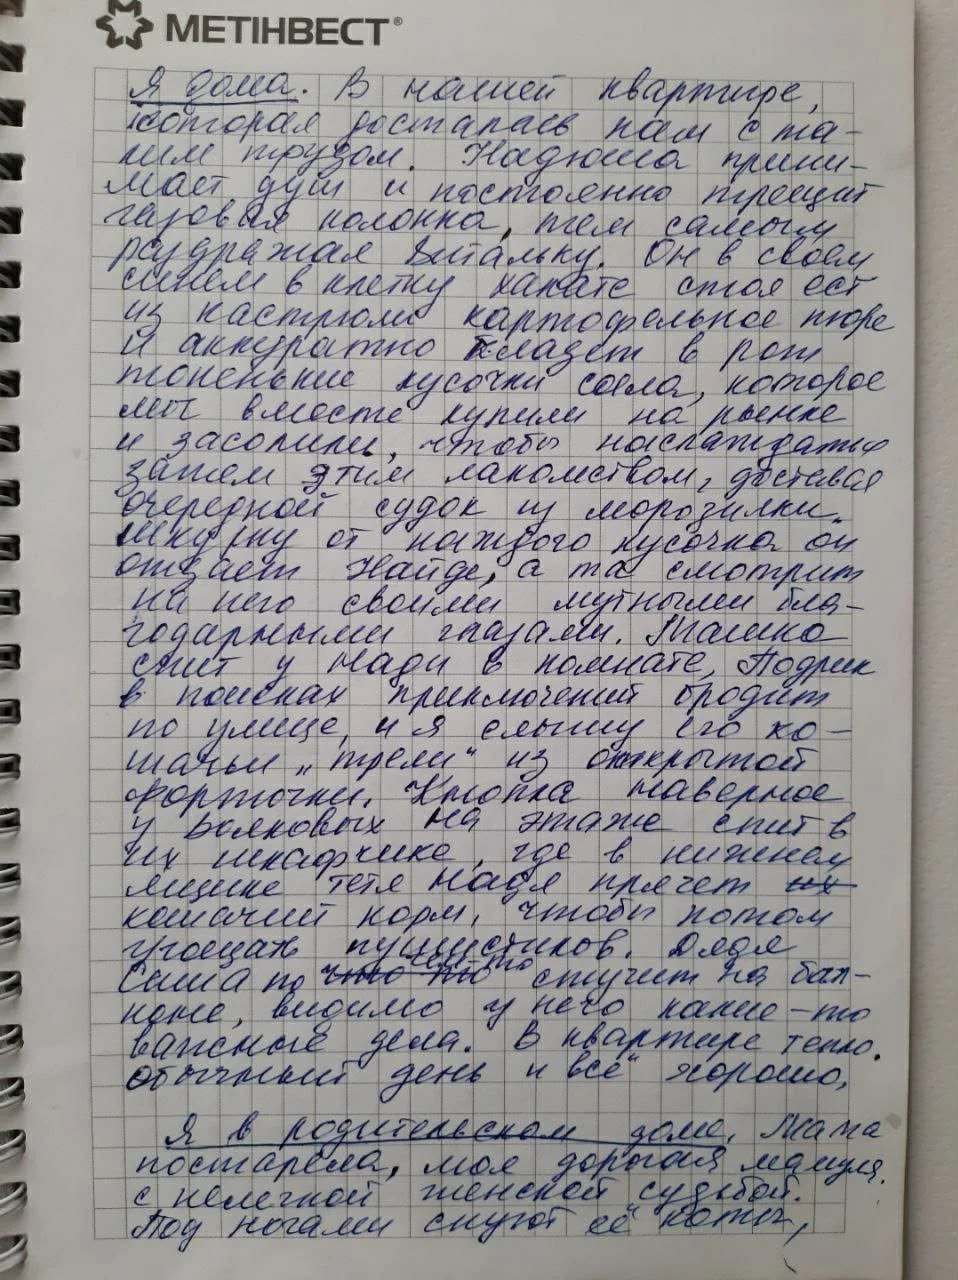 МЕТІНВЕСТ®
Я дома. В нашей квартире,
которая досталась нам с та-
ким трудом. Надюша прини-
мает душ и постоянно трещит
газовая колонка, тем самым
раздражая Витальку. Он в своём
синем в клетку халате стоя ест
из кастрюли картофельное пюре
и аккуратно кладет в рот
тоненькие кусочки сала, которое
мы вместе купили на рынке
и засолили, чтобы наслаждаться
затем этим лакомством, доставая
очередной судок из морозилки.
Шкурку от каждого кусочка он
отдает Найде, а та смотрит
на него своими мутными бла-
годарными глазами. Машка
спит у Нади в комнате, Подрик
в поисках приключений бродит
по улице, и я слышу его ко-
шачьи „трели" из открытой
форточки. Кнопка наверное
у Волковых на этаже спит в
их шкафчике, где в нижнем
ящике тетя Надя прячет их
кошачий корм, чтобы потом
угощать пушистиков. Дядя
Саша по что-то чем-то стучит на бал-
коне, видимо у него какие-то
важные дела. В квартире тепло.
Обычный день и всё хорошо.
Я в родительском доме. Мама
постарела, моя дорогая мамуля,
с нелегкой женской судьбой.
Под ногами снуют её коты,